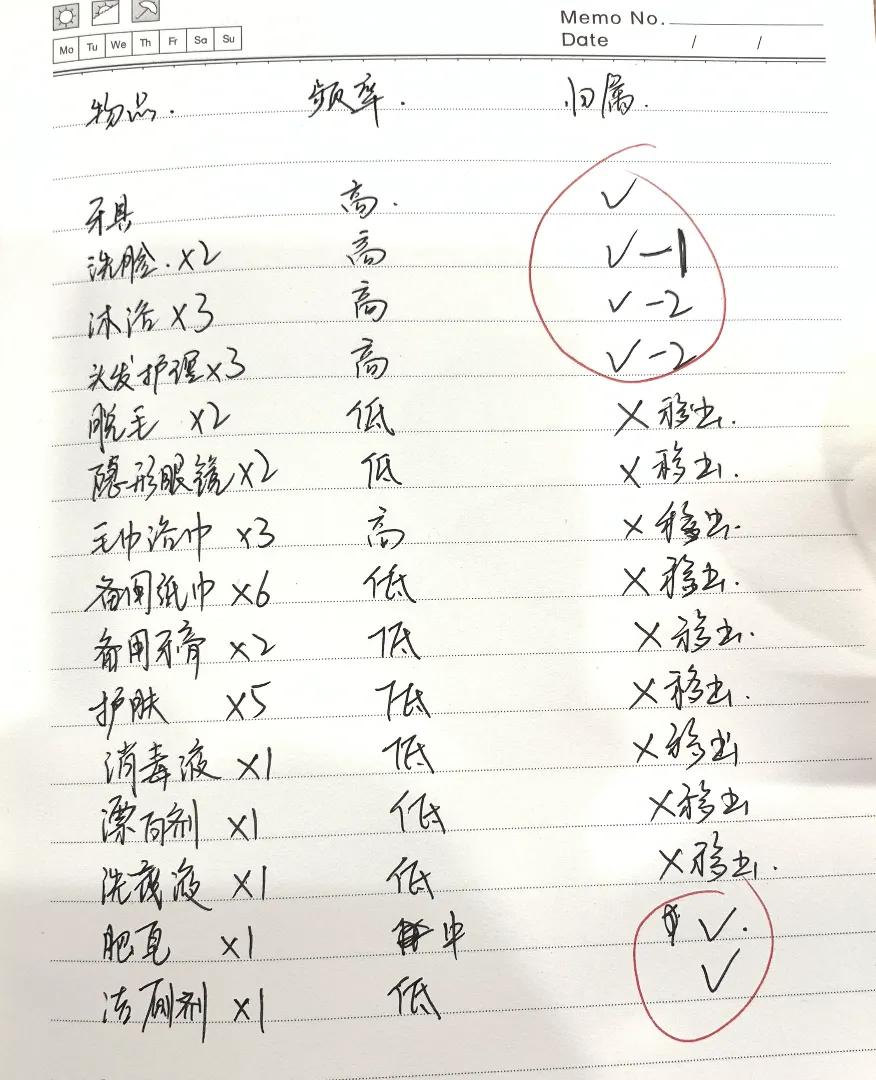 Memo No.
Mo Tu We Th Fr Sa Su
Date / /
物品. 频率. 归属.
牙具 高. ✓
洗脸.×2 高 ✓-1
沐浴×3 高 ✓-2
头发护理×3 高 ✓-2
脱毛 ×2 低 ×移出.
隐形眼镜×2 低 ×移出.
毛巾浴巾 ×3 高 ×移出.
备用纸巾 ×6 低 ×移出.
备用牙膏 ×2 低 ×移出.
护肤 ×5 低 ×移出.
消毒液 ×1 低 ×移出
漂白剂 ×1 低 ×移出
洗衣液 ×1 低 ×移出.
肥皂 ×1 中 ✓.
洁厕剂 ×1 低 ✓